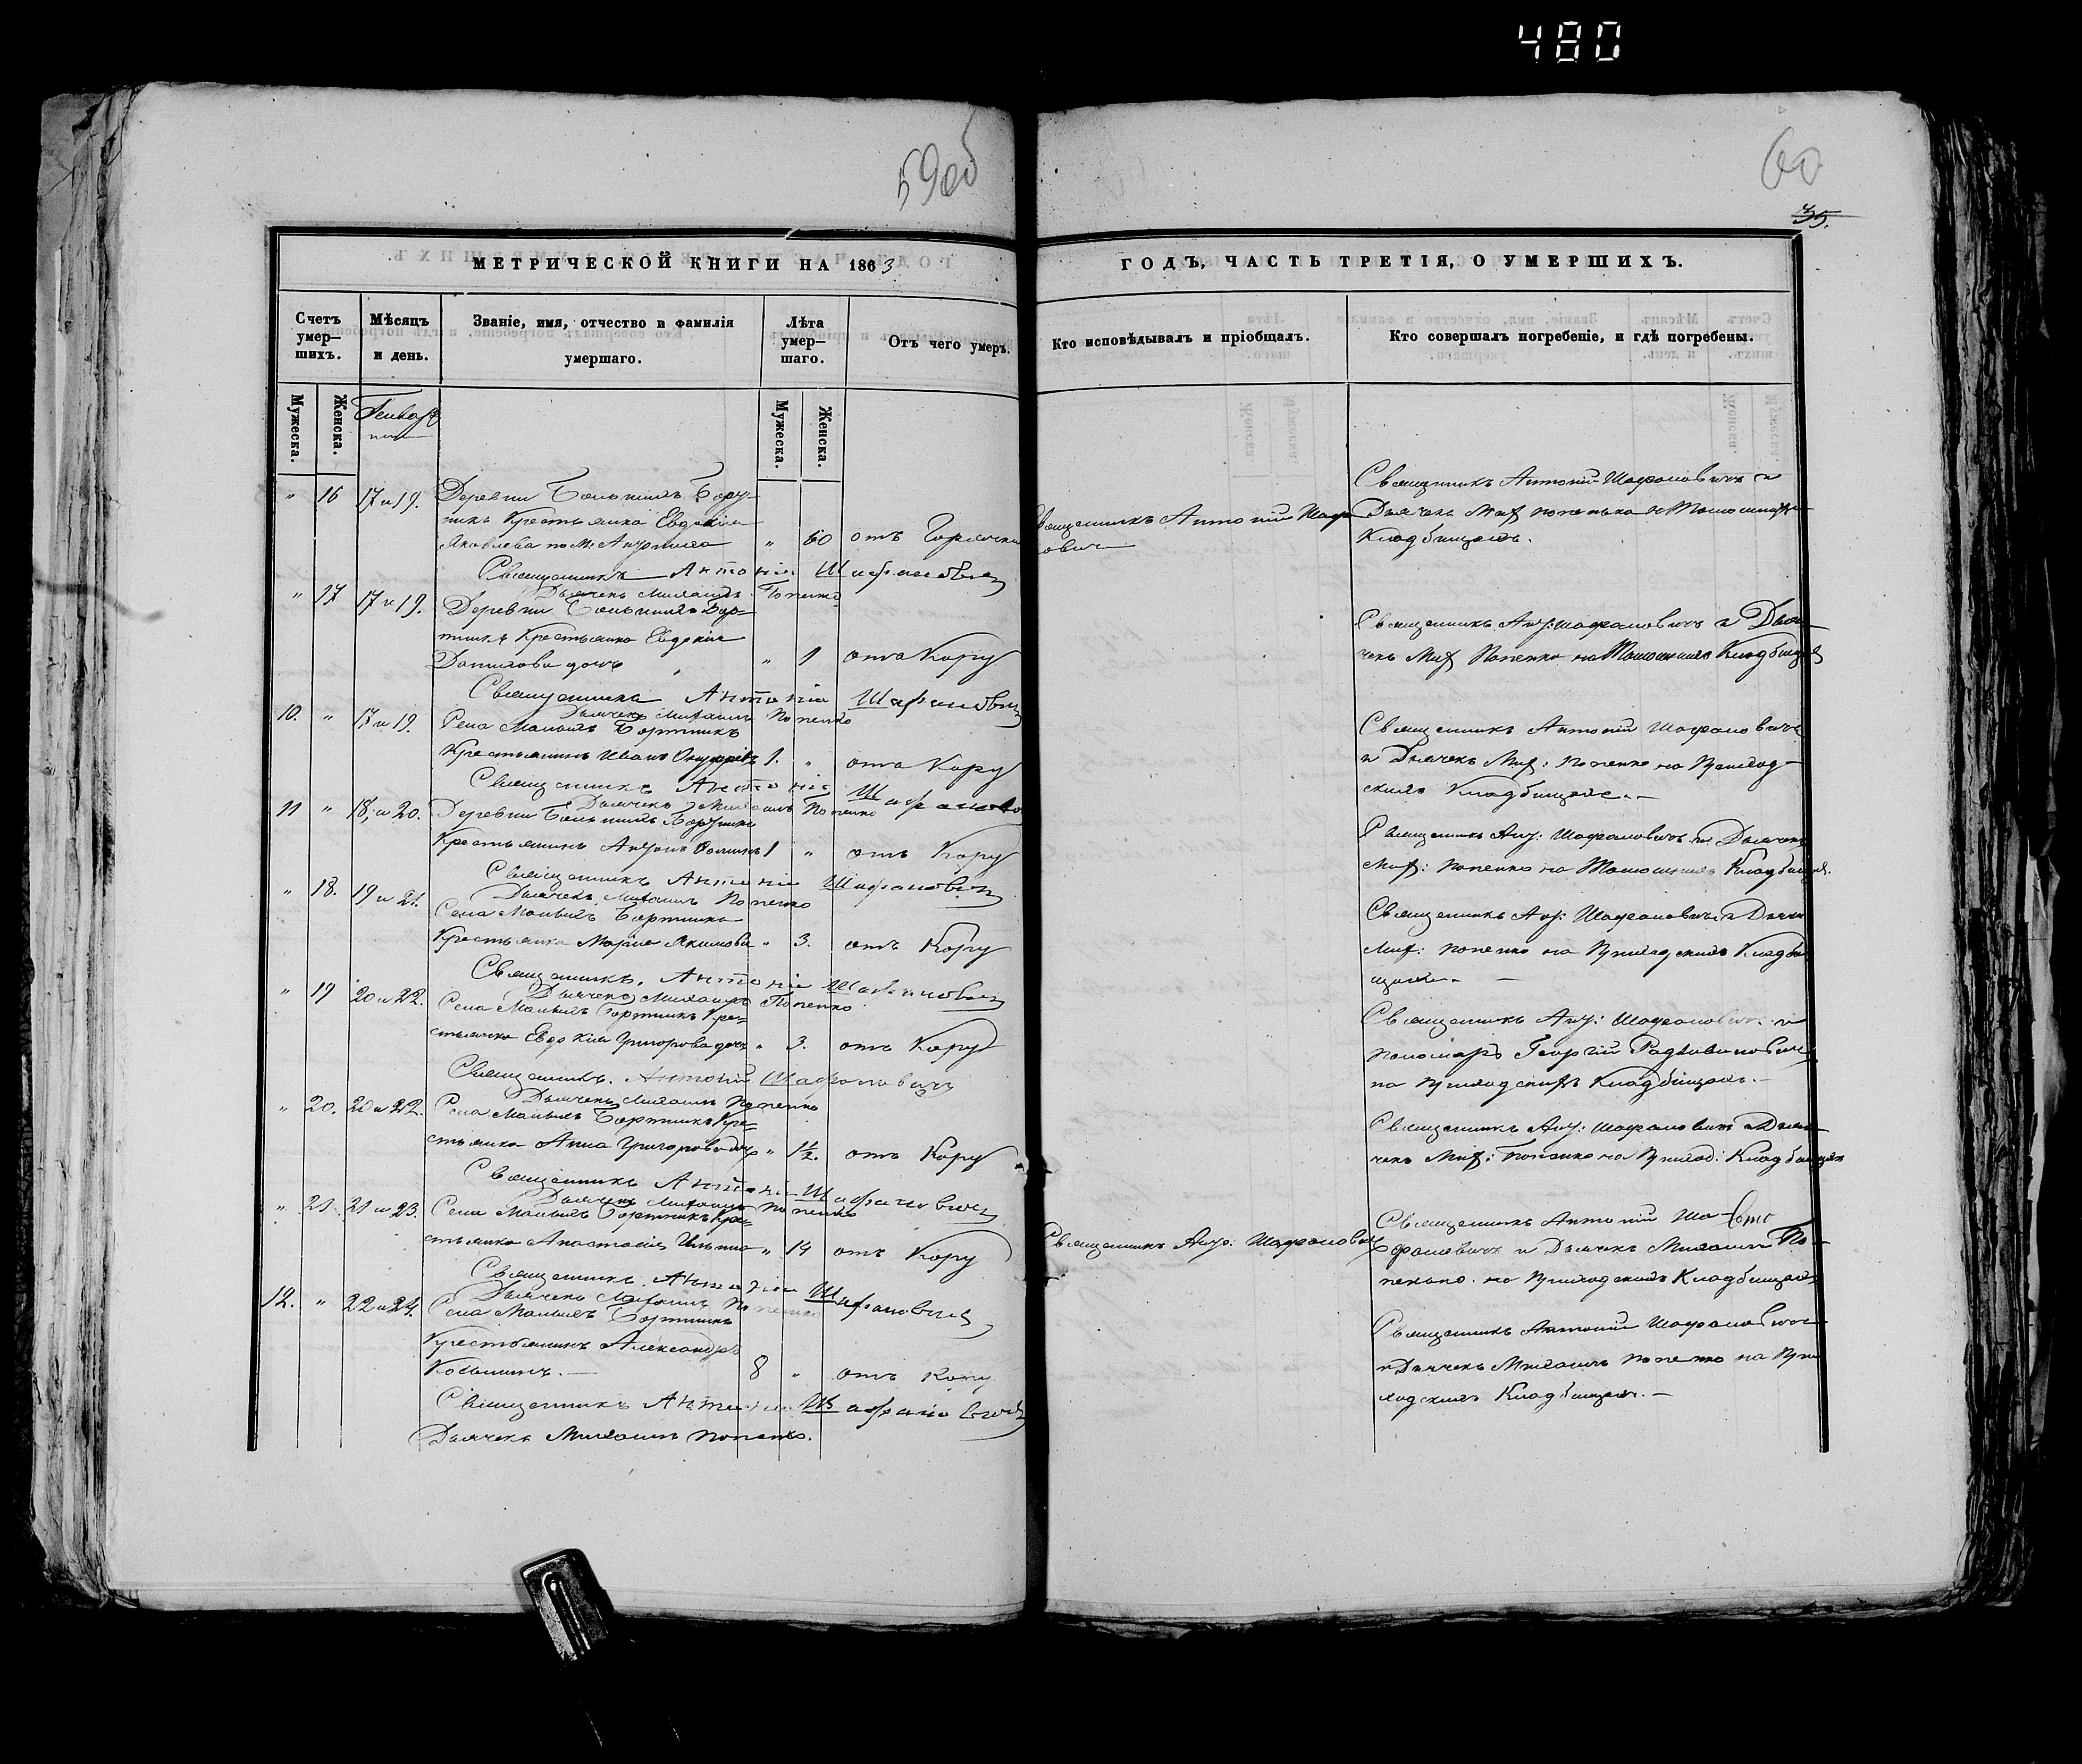 480
59об
60
35.
МЕТРИЧЕСКОЙ КНИГИ НА 1863
ГОДЪ, ЧАСТЬ ТРЕТІЯ, О УМЕРШИХЪ.
Счетъ умер-шихъ.
Мѣсяцъ и день.
Званіе, имя, отчество и фамилія умершаго.
Лѣта умер-шаго.
Отъ чего умеръ.
Кто исповѣдывалъ и пріобщалъ.
Кто совершалъ погребеніе, и гдѣ погребены.
Мужеска.
Женска.
Мужеска.
Женска.
" 16 17 и 19. Деревни
Крестьянка Евдокія
Яковлева " 60 отъ Горячки
Священникъ Антоній
Священникъ Антоній Шафрановичъ и
Дьячекъ Мих Попенко
Кладбищахъ.
Священникъ Антоній Шафрановичъ
Дьячекъ Михаилъ Попенко
" 17 17 и 19. Деревни
Крестьянка Евдокія
Данилова дочь " 1 отъ Кору
Священникъ Ант: Шафрановичъ и Дья-
чекъ Мих Попенко на Кладбищахъ
Священникъ Антоній Шафрановичъ
Дьячекъ Михаилъ Попенко
10. " 17 и 19. Села Малыхъ Бортникъ
Крестьянинъ Иванъ 1. " отъ Кору
Священникъ Антоній Шафрановичъ
и Дьячекъ Мих: Попенко на Приход-
скихъ Кладбищахъ. —
Священникъ Антоній Шафрановичъ
Дьячекъ Михаилъ Попенко
11 " 18, и 20. Деревни
Крестьянинъ Антонъ 1 " отъ Кору
Священникъ Ант: Шафрановичъ и Дьячекъ
Мих: Попенко на Кладбищахъ.
Священникъ Антоній Шафрановичъ
Дьячекъ Михаилъ Попенко
" 18. 19 и 21. Села Малыхъ Бортникъ
Крестьянка Марія Якимова " 3. отъ Кору
Священникъ Ант: Шафрановичъ и Дьячекъ
Мих: Попенко на Приходскихъ Кладби-
щахъ. —
Священникъ Антоній Шафрановичъ
Дьячекъ Михаилъ Попенко
" 19 20 и 22. Села Малыхъ Бортникъ Кре=
стьянка Евдокія Григорова дочь " 3. отъ Кору
Священникъ Ант: Шафрановичъ и
пономарь Георгій
на Приходскихъ Кладбищахъ. —
Священникъ Антоній Шафрановичъ
Дьячекъ Михаилъ Попенко
" 20. 20 и 22. Села Малыхъ Бортникъ Кре=
стьянка Анна Григорова дочь " 1½. отъ Кору
Священникъ Ант: Шафрановичъ и Дья-
чекъ Мих: Попенко на Приход: Кладбищахъ
Священникъ Антоній Шафрановичъ
Дьячекъ Михаилъ Попенко
" 21. 21 и 23. Села Малыхъ Бортникъ Кре=
стьянка Анастасія Ильина " 14 отъ Кору
Священникъ Ант: Шафрановичъ
Священникъ Антоній Ша-
франовичъ и Дьячекъ Михаилъ По-
пенко. на Приходскихъ Кладбищахъ
Священникъ Антоній Шафрановичъ
Дьячекъ Михаилъ Попенко
12. " 22 и 24. Села Малыхъ Бортникъ
Крестьянинъ Александръ
8 " отъ Кору
Священникъ Антоній Шафрановичъ
и Дьячекъ Михаилъ Попенко на При-
ходскихъ Кладбищахъ. —
Священникъ Антоній Шафрановичъ
Дьячекъ Михаилъ Попенко.